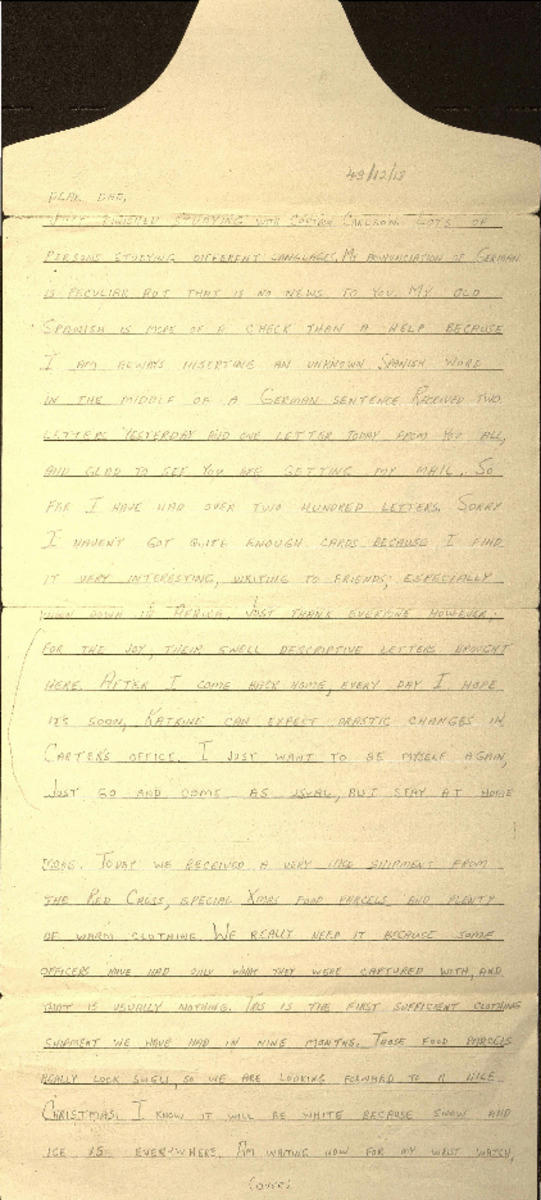 43/12/18
DEAR DAD,
JUST FINISHED STUDYING WITH CARLSON. LOTS OF
PERSONS STUDYING DIFFERENT LANGUAGES. MY PRONUNCIATION OF GERMAN
IS PECULIAR BUT THAT IS NO NEWS TO YOU. MY OLD
SPANISH IS MORE OF A CHECK THAN A HELP BECAUSE
I AM ALWAYS INSERTING AN UNKNOWN SPANISH WORD
IN THE MIDDLE OF A GERMAN SENTENCE. RECEIVED TWO
LETTERS YESTERDAY AND ONE LETTER TODAY FROM YOU ALL,
AND GLAD TO SEE YOU ARE GETTING MY MAIL. SO
FAR I HAVE HAD OVER TWO HUNDRED LETTERS. SORRY
I HAVEN'T GOT QUITE ENOUGH CARDS BECAUSE I FIND
IT VERY INTERESTING, WRITING TO FRIENDS; ESPECIALLY
WHEN DOWN IN AFRICA. JUST THANK EVERYONE HOWEVER,
FOR THE JOY, THEIR SWELL DESCRIPTIVE LETTERS BROUGHT
HERE. AFTER I COME BACK HOME, EVERY DAY I HOPE
IT'S SOON, KATRINE CAN EXPECT DRASTIC CHANGES IN
CARTER'S OFFICE. I JUST WANT TO BE MYSELF AGAIN,
JUST GO AND COME AS USUAL, BUT STAY AT HOME
MORE. TODAY WE RECEIVED A VERY NICE SHIPMENT FROM
THE RED CROSS, SPECIAL XMAS FOOD PARCELS AND PLENTY
OF WARM CLOTHING. WE REALLY NEED IT BECAUSE SOME
OFFICERS HAVE HAD ONLY WHAT THEY WERE CAPTURED WITH, AND
THAT IS USUALLY NOTHING. THIS IS THE FIRST SUFFICIENT CLOTHING
SHIPMENT WE HAVE HAD IN NINE MONTHS. THOSE FOOD PARCELS
REALLY LOOK SWELL, SO WE ARE LOOKING FORWARD TO A NICE
CHRISTMAS. I KNOW IT WILL BE WHITE BECAUSE SNOW AND
ICE IS EVERYWHERE. AM WAITING NOW FOR MY WRIST WATCH,
(OVER)